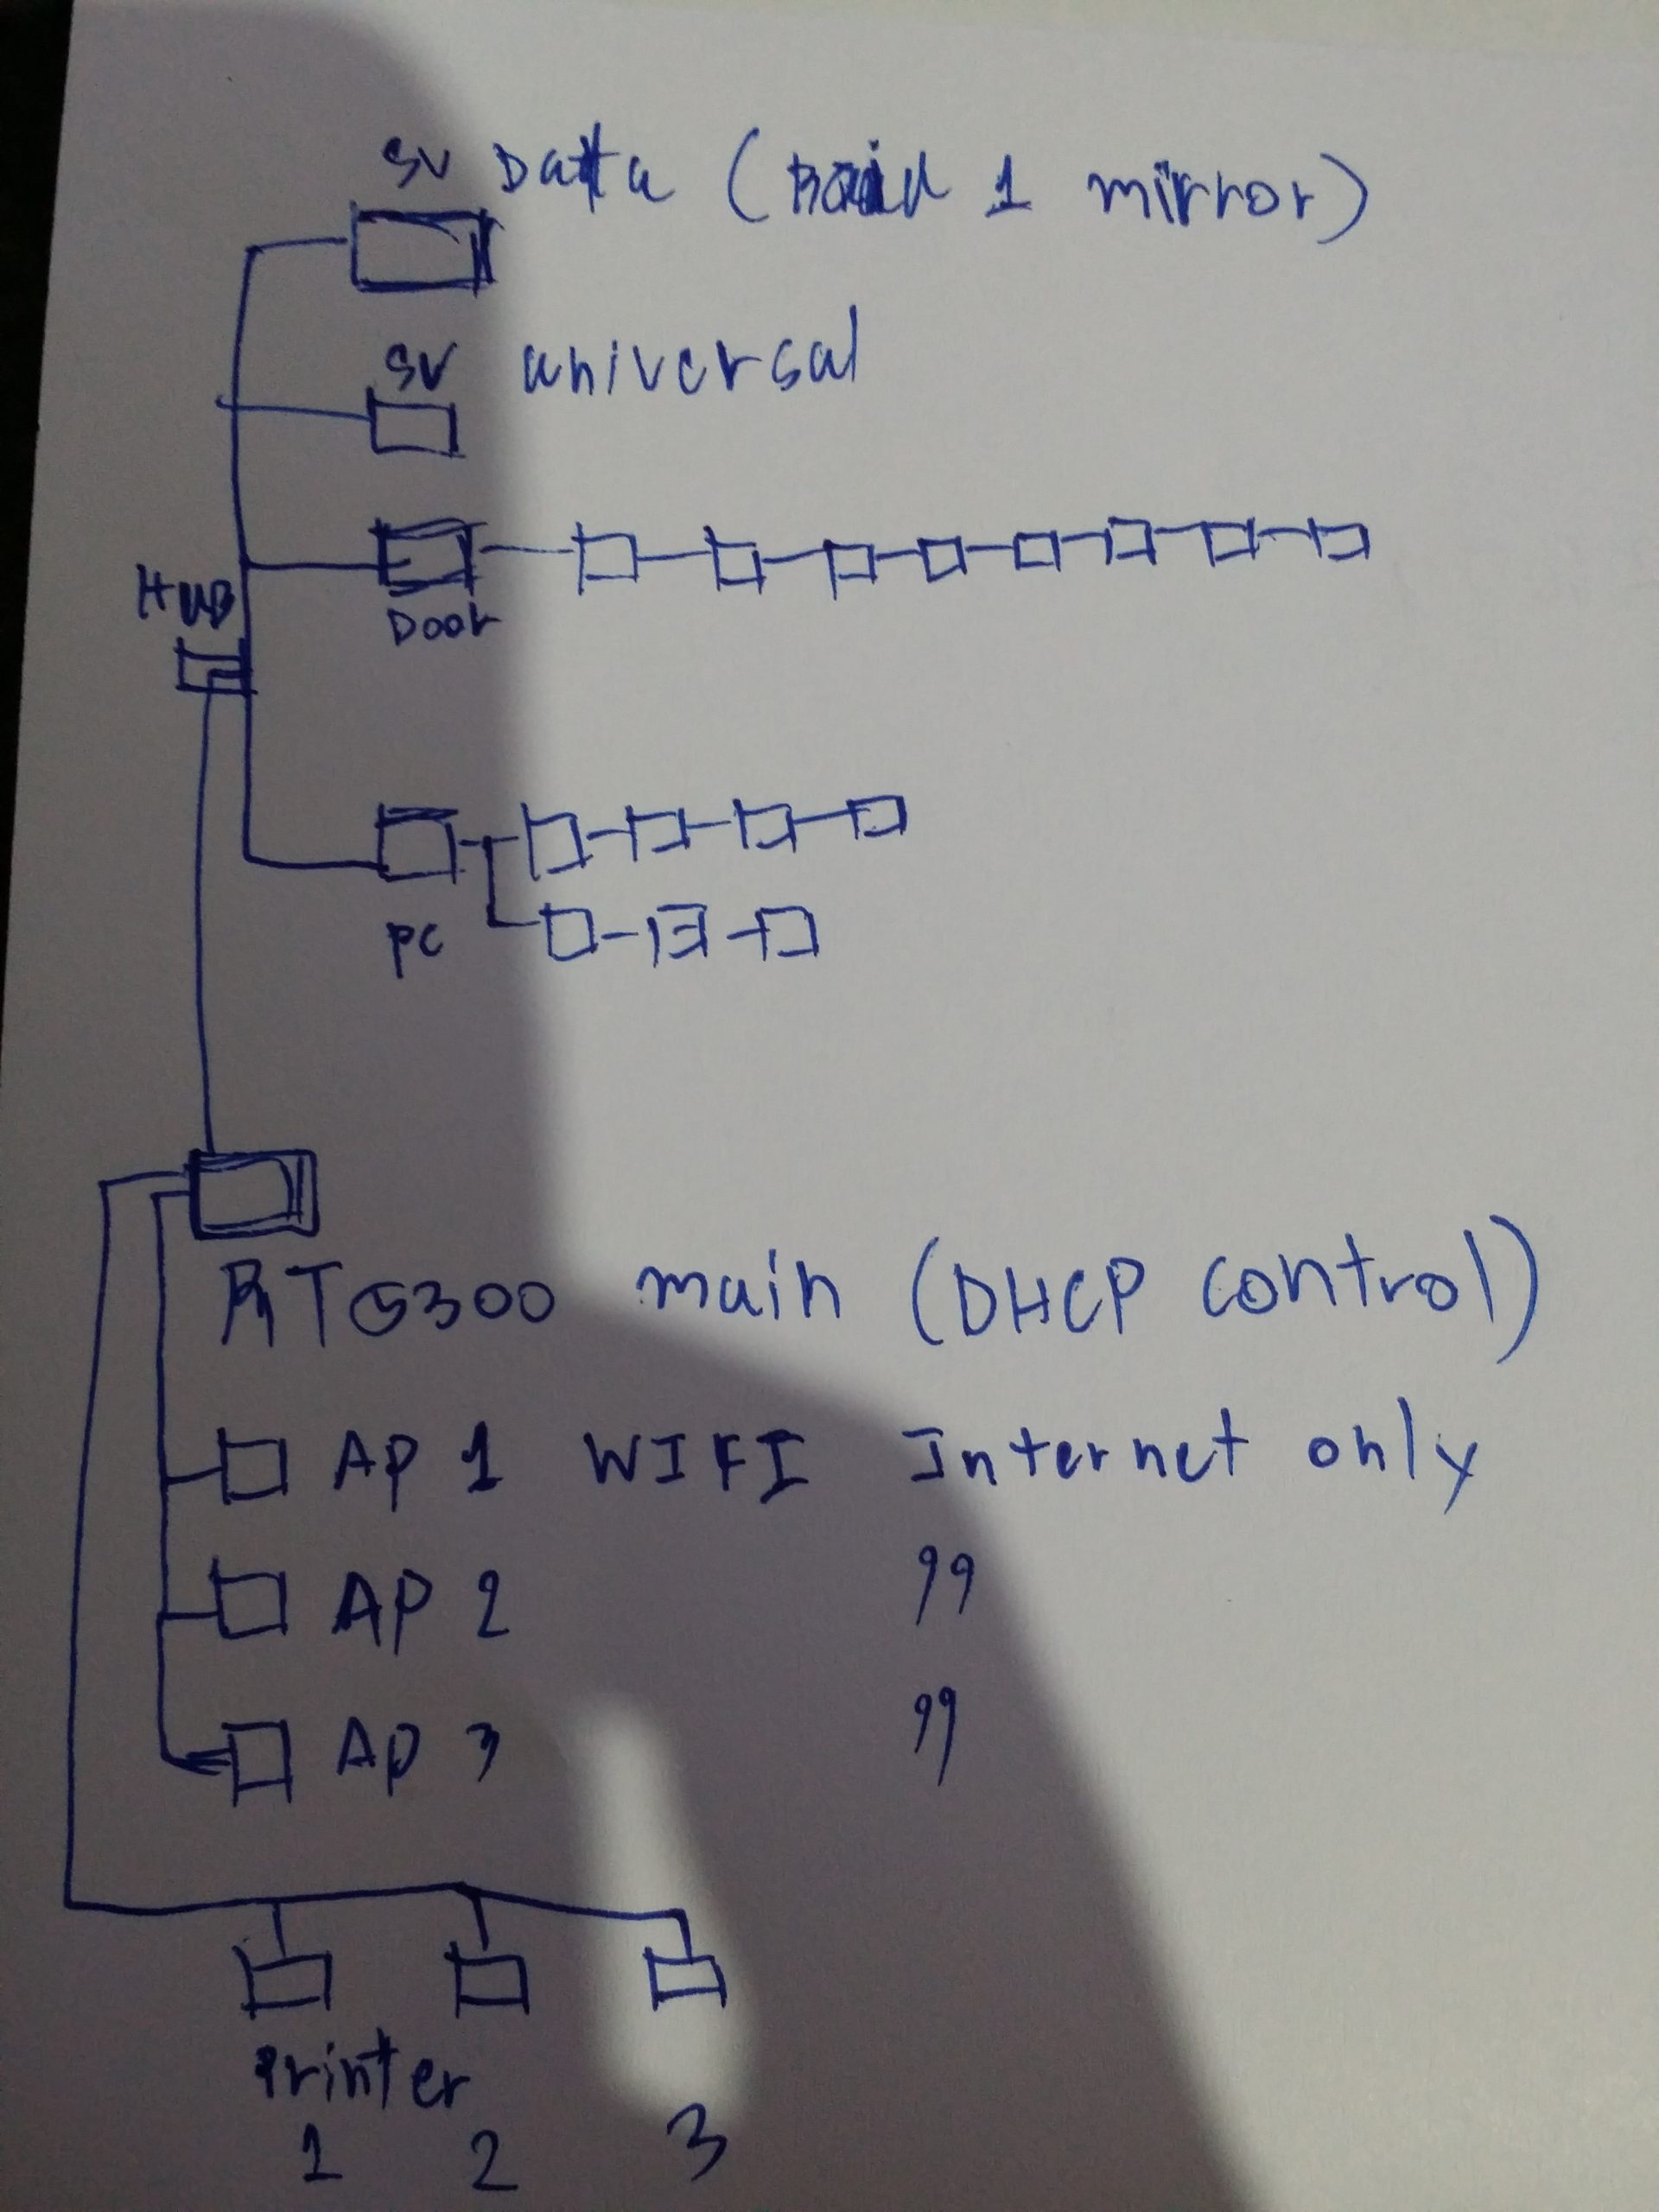 SV Data (Raid 1 mirror)
SV universal
HUB
Door
PC
RTG300 main (DHCP control)
AP 1 WIFI Internet only
AP 2 "
AP 3 "
Printer
1 2 3